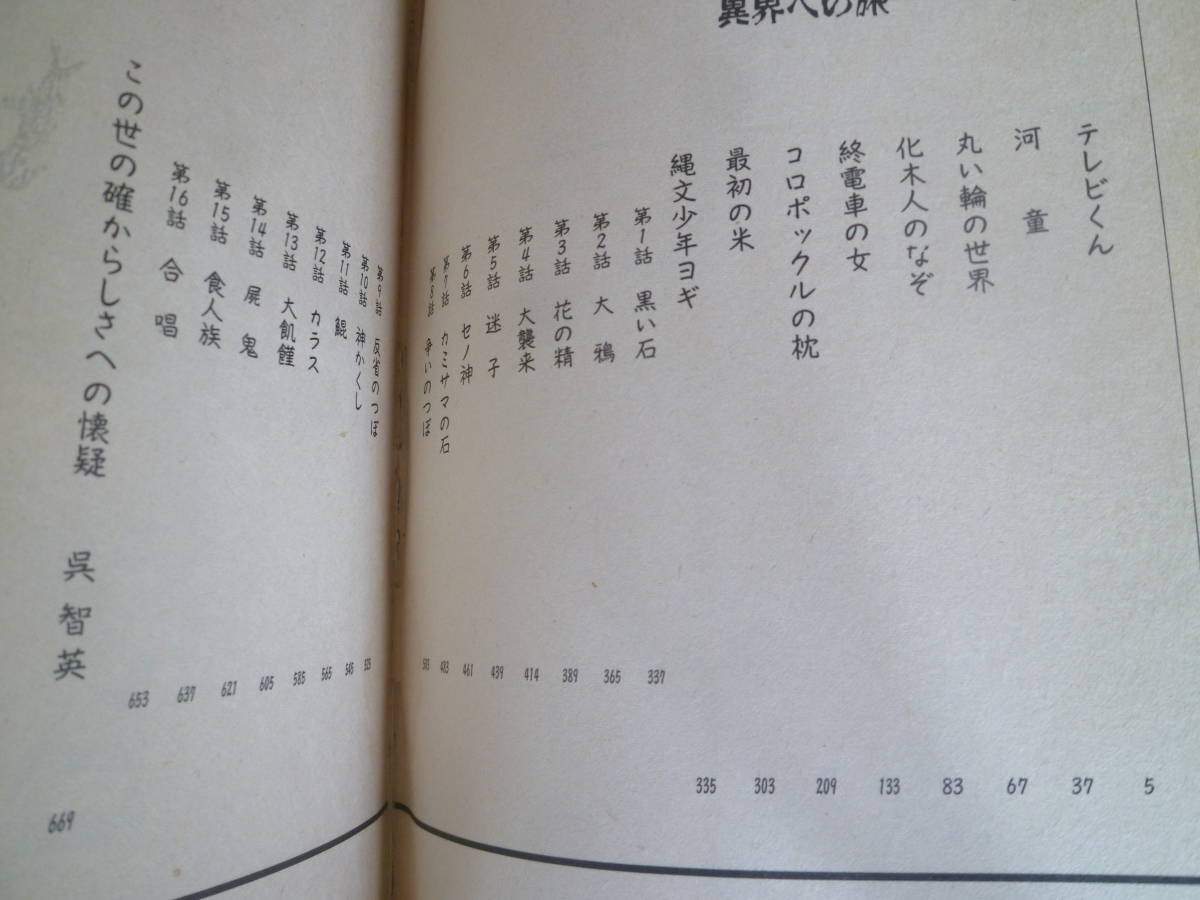 異界への旅
テレビくん 5
河童 37
丸い輪の世界 67
化木人のなぞ 83
終電車の女 133
コロポックルの枕 209
最初の米 303
縄文少年ヨギ 335
第1話 黒い石 337
第2話 大鴉 365
第3話 花の精 389
第4話 大襲来 414
第5話 迷子 439
第6話 セノ神 461
第7話 カミサマの石 483
第8話 争いのつぼ
第9話 反省のつぼ 525
第10話 神かくし 545
第11話 鯤 565
第12話 カラス 585
第13話 大飢饉 605
第14話 屍鬼 621
第15話 食人族 637
第16話 合唱 653
この世の確からしさへの懐疑 呉智英 669